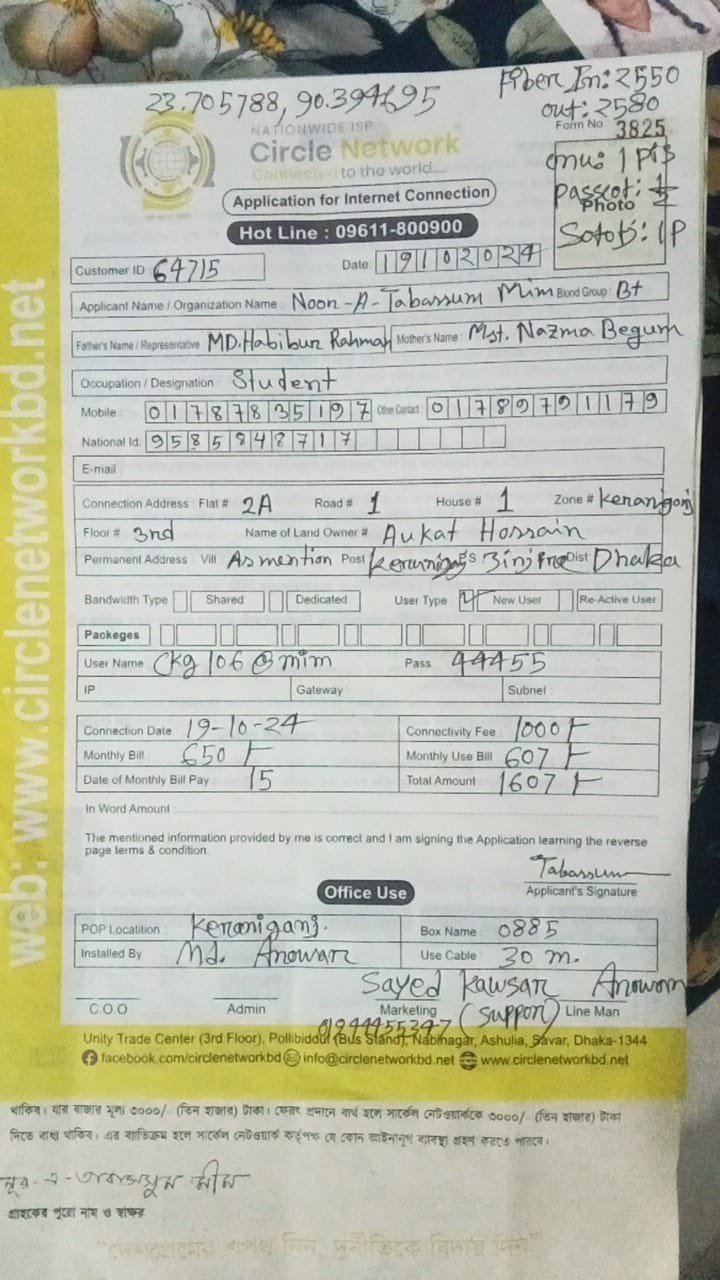 23.705788, 90.394695
Fiber In: 2550
out: 2580
Form No 3825
NATIONWIDE ISP
Circle Network
Connected to the world....
onu: 1 PIS
Photo
Application for Internet Connection
Hot Line : 09611-800900
Customer ID : 64715
Date: 19102024
Applicant Name / Organization Name : Noon-A-Tabassum Mim Blood Group : B+
Father's Name / Representative MD. Habibur Rahman Mother's Name : Mst. Nazma Begum
Occupation / Designation : Student
Mobile : 01787835197 Other Contact : 01789791179
National Id: 9585848717
E-mail
Connection Address : Flat # 2A Road # 1 House # 1 Zone # Keraniganj
Floor # 3rd Name of Land Owner # Aukat Hossain
Permanent Address Vill As mention Post Keraniganj PS Dist Dhaka
Bandwidth Type Shared Dedicated User Type New User Re-Active User
Packeges
User Name : Ckg106@mim Pass : 44455
IP Gateway Subnel
Connection Date : 19-10-24 Connectivity Fee : 1000
Monthly Bill : 650 Monthly Use Bill : 607
Date of Monthly Bill Pay : 15 Total Amount : 1607
In Word Amount :
The mentioned information provided by me is correct and I am signing the Application learning the reverse
page terms & condition.
Tabassum
Applicant's Signature
Office Use
POP Locatition : Keraniganj. Box Name : 0885
Installed By Md. Anowar Use Cable : 30 m.
Sayed Kawsar Anowar
C.O.O Admin Marketing (Support) Line Man
Unity Trade Center (3rd Floor), Pollibiddut (Bus Stand), Nabinagar, Ashulia, Savar, Dhaka-1344
facebook.com/circlenetworkbd info@circlenetworkbd.net www.circlenetworkbd.net
web: www.circlenetworkbd.net
থাকিব। যার বাজার মূল্য ৩০০০/- (তিন হাজার) টাকা। ফেরৎ প্রদানে ব্যর্থ হলে সার্কেল নেটওয়ার্ককে ৩০০০/- (তিন হাজার) টাকা
দিতে বাধ্য থাকিব। এর ব্যতিক্রম হলে সার্কেল নেটওয়ার্ক কর্তৃপক্ষ যে কোন আইনানুগ ব্যবস্থা গ্রহণ করতে পারবে।
নূর-এ-তাবাসসুম মীম
গ্রাহকের পুরো নাম ও স্বাক্ষর
"দেশপ্রেমের শপথ নিন, দুর্নীতিকে বিদায় দিন"